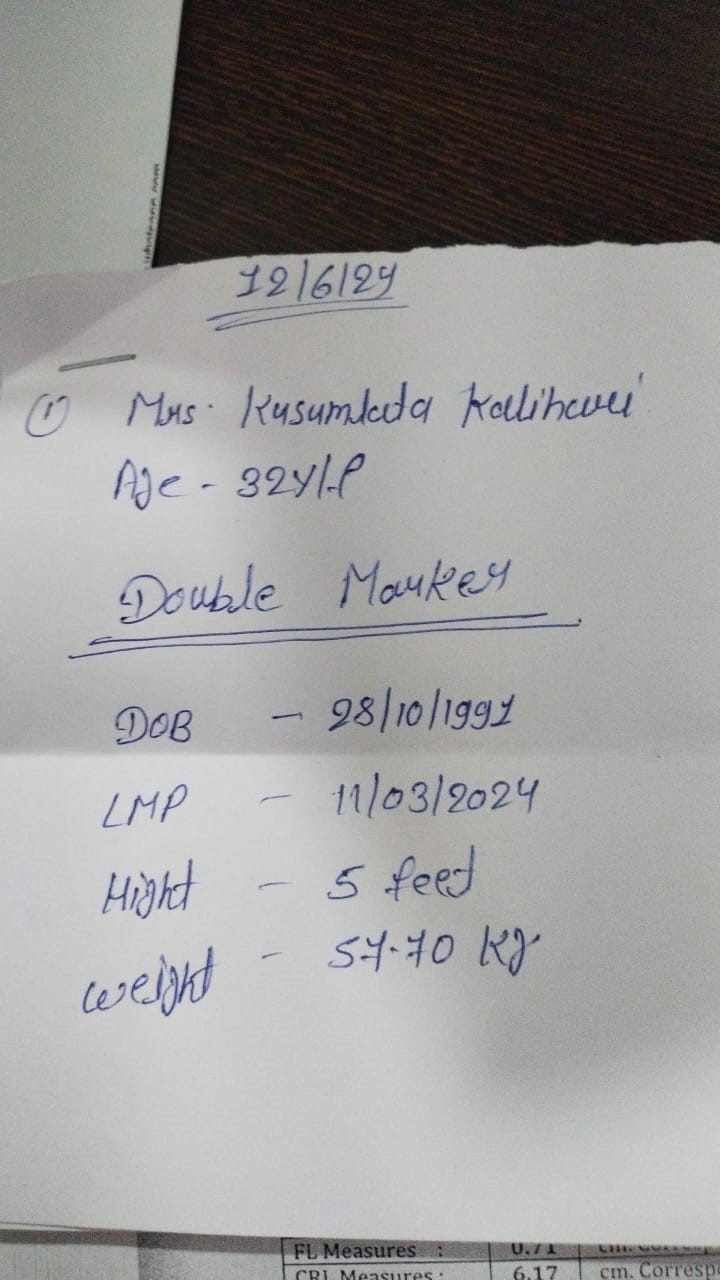 12/6/24
① Mrs. Kusumlata Kalihari
Age - 32Y/F
Double Marker
DOB - 28/10/1991
LMP - 11/03/2024
Hight - 5 feet
weight - 57.70 Kg
FL Measures : 0.71 cm.
CRL Measures : 6.17 cm. Corresp